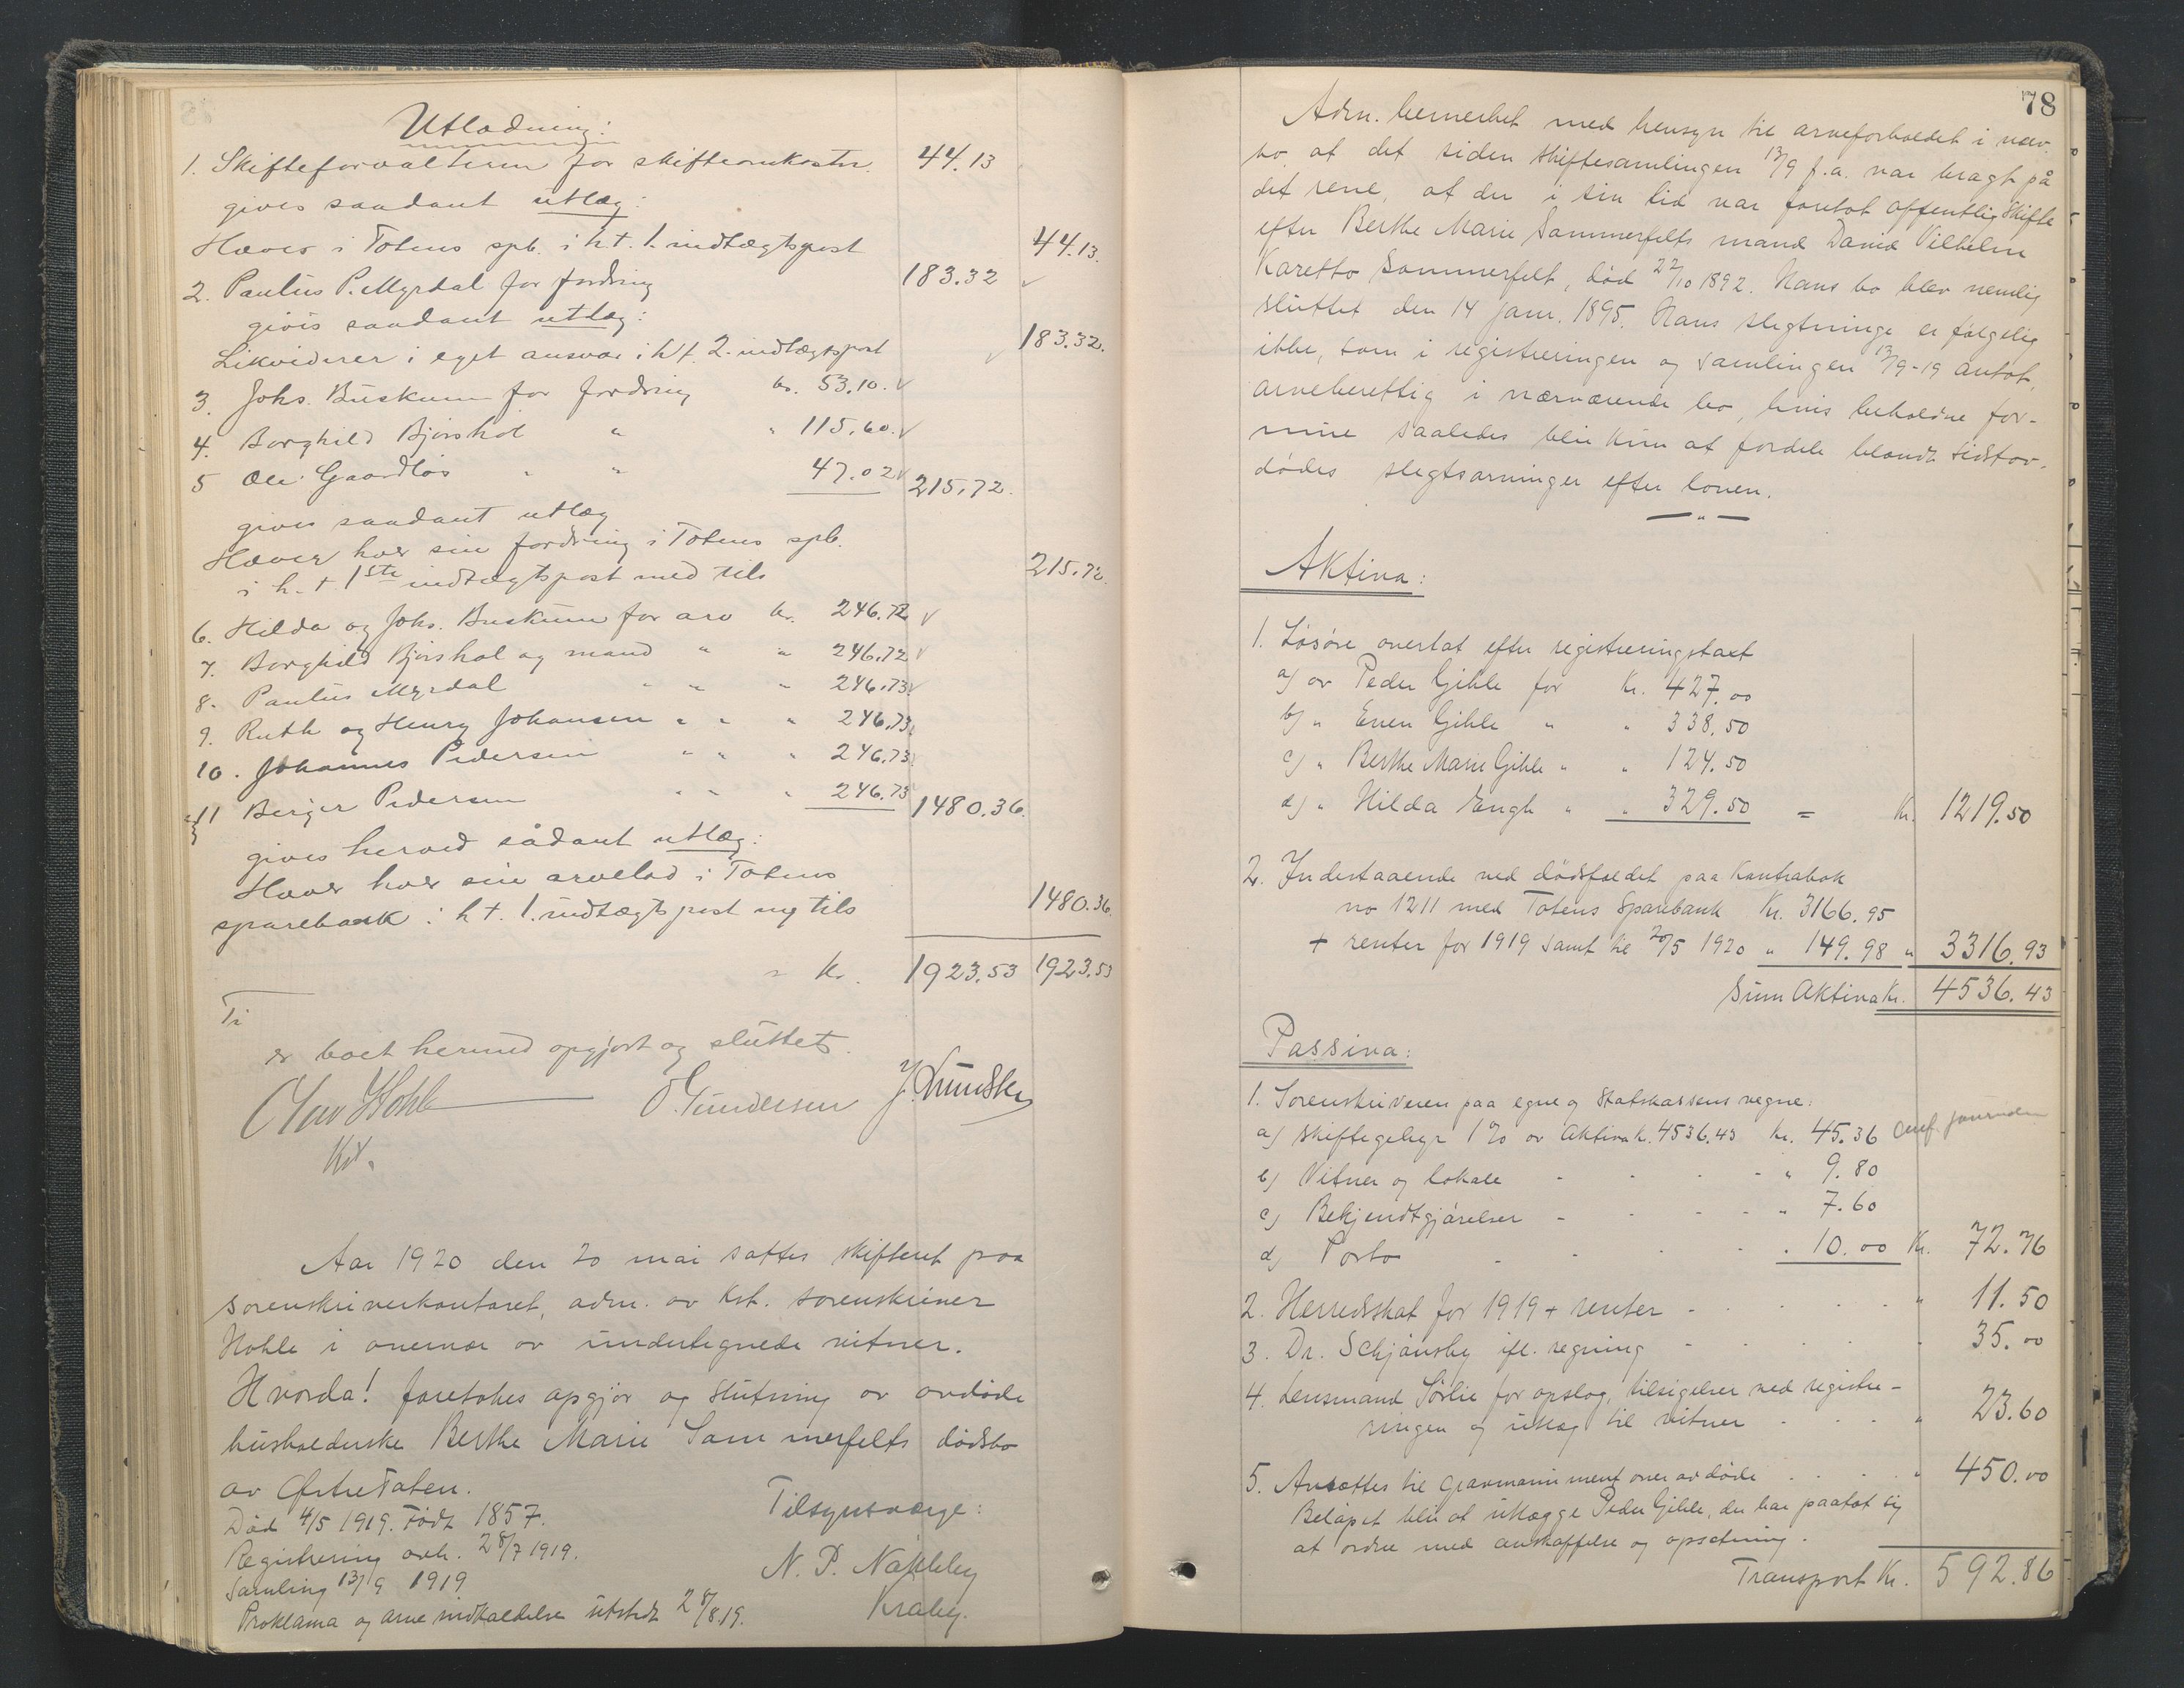 Utlodning:
1. Skifteforvalteren for skifteomkostn. 44.13
gives saadant utlæg:
Hæves i Totens spb. i h.t. 1 indtægtspost 44.13.
2. Paulus P. Myrdal for fordring 183.32
givis saadant utlæg:
Likviderer i eget ansvar i h.t. 2. indtægtspost 183.32.
3. Johs. Buskum for fordring kr. 53.10.
4. Borghild Bjørshol " " 115.60.
5 Ole Gaardløs " " 47.02 215.72.
gives saadant utlæg
Hæver hver sin fordring i Totens spb.
i h.t 1ste indtægtspost med tils 215.72.
6. Hilda og Johs. Buskum for arv kr. 246.72
7. Borghild Bjørshol og mand " " 246.72
8. Paulus Myrdal " " " 246.73
9. Ruth og Henry Johansen " " " 246.73
10. Johannes Pedersen " " " 246.73
11 Berger Pedersen " " " 246.73 1480.36.
gives herved sådant utlæg:
Hæver hver sin arvelod i Totens
sparebank i h.t. 1. indtægtspost med tils 1480.36.
= kr. 1923.53 1923.53
Ti
er boet hermed opgjort og sluttet.
Olav Hohle O. Gundersen J. Lundsten
Kst.
Aar 1920 den 20 mai sattes skifteret paa
sorenskriverkontoret, adm. av kst. sorenskriver
Hohle i overvær av undertegnede vitner.
Hvorda! foretokes opgjør og slutning av avdøde
husholderske Berthe Marie Sommerfelts dødsbo
av Østre Toten.
Død 4/5 1919. Født 1857. Tilsynsværge:
Registrering avh. 28/7 1919. N. P. Nøkleby
Samling 13/9 1919 Kraby.
Proklama og arveindkaldelse utstedt 28/8.19.
78
Adm. bemerket med hensyn til arveforholdet i nærv.
bo, at det siden skiftesamlingen 13/9 f.a. var bragt på
det rene, at der i sin tid var foretat offentlig skifte
efter Berthe Marie Sommerfelts mand Daniel Vilhelm
Karetto Sommerfelt, død 22/10 1892. Hans bo blev nemlig
sluttet den 14 janr. 1895. Hans slegtninge er følgelig
ikke, som i registreringen og samlingen 13/9-19 antat,
arveberettig i nærværende bo, hvis beholdne for-
mue saaledes blir kun at fordele blandt sidstav-
dødes slegtsarvinger efter loven.
— " —
Aktiva:
1. Løsøre overtat efter registreringstakst
a) av Peder Gihle for Kr. 427.00
b) " Even Gihle " " 338.50
c) " Berthe Marie Gihle " " 124.50
d) " Hilda Engh " " 329.50 = Kr. 1219.50
2. Indestaaende ved dødsfaldet paa Kontrabok
no 1211 med Totens Sparebank Kr. 3166.95
+ renter for 1919 samt til 20/5 1920 " 149.98 " 3316.93
Sum Aktiva Kr. 4536.43
Passiva:
1. Sorenskriveren paa egne og Statskassens vegne:
a) Skiftegebyr 1% av Aktiva k. 4536.43 Kr. 45.36 conf. journalen
b) Vitner og lokale - - - - " 9.80
c) Bekjendtgjørelser - - - - " 7.60
d) Porto - - - " 10.00 Kr. 72.76
2. Herredsskat for 1919 + renter - - - - " 11.50
3. Dr. Schjønsby ifl. regning - - - - " 35.00
4. Lensmand Sørlie for opslag, tilsigelser ved registre-
ringen og utlæg til vitner - - - - " 23.60
5. Avsættes til gravmonument over avdøde - - - - " 450.00
Beløpet blir at utlægge Peder Gihle, der har paatat sig
at ordne med anskaffelse og opsetning.
Transport Kr. 592.86